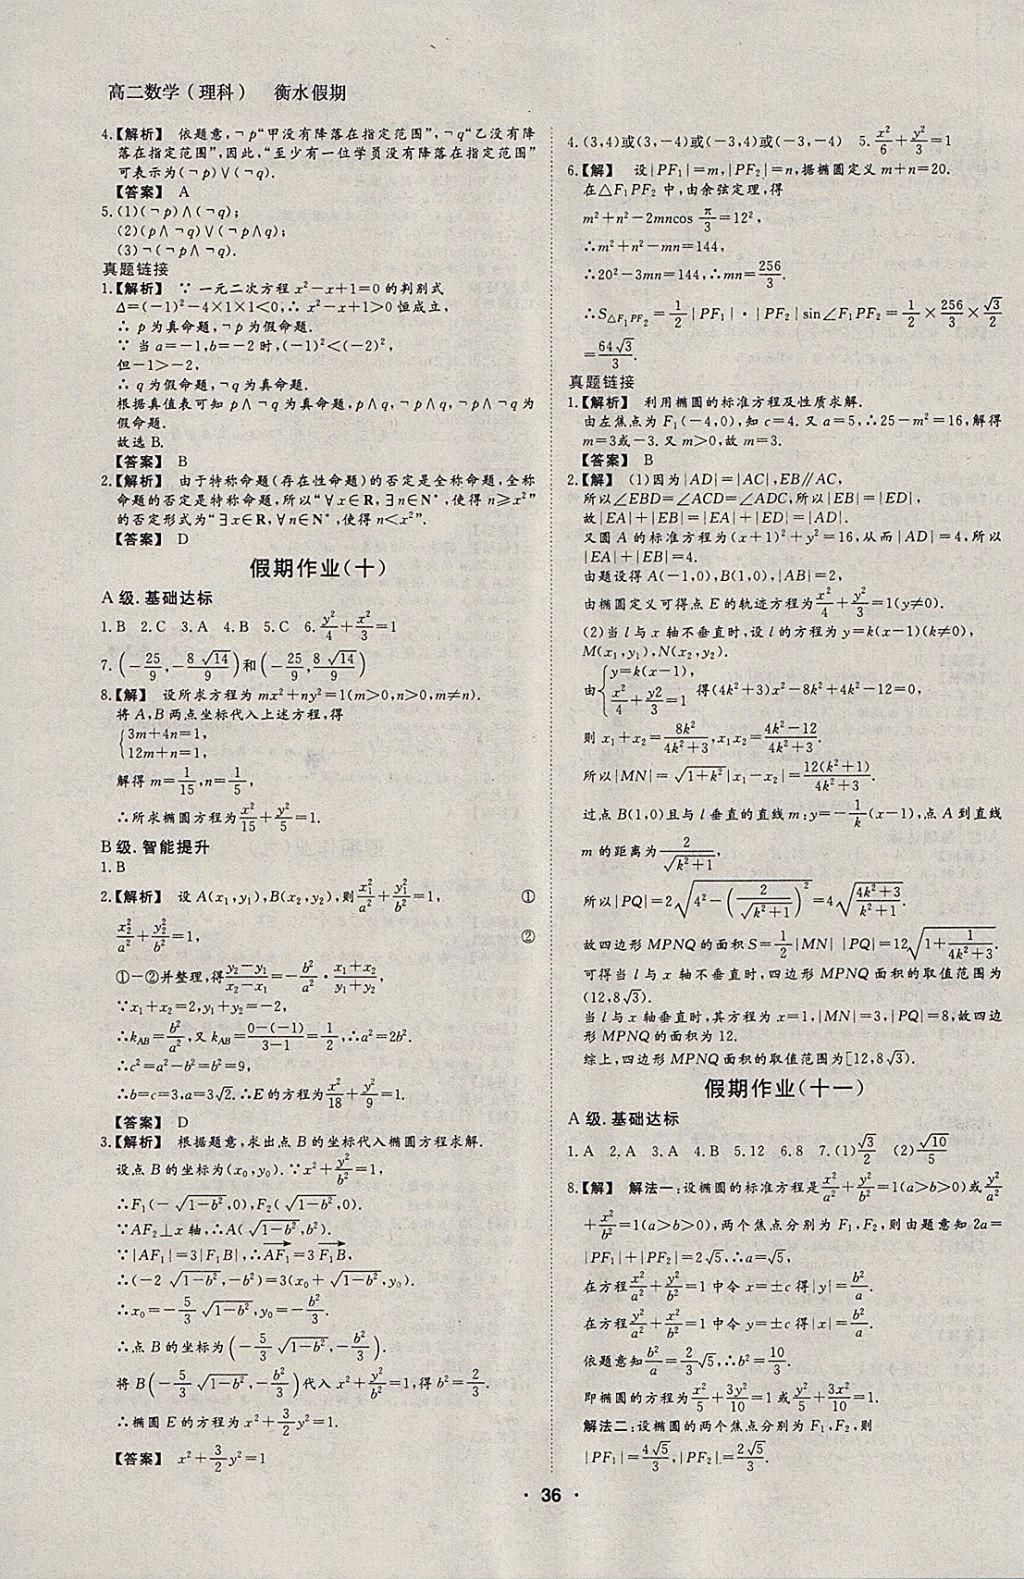 高二数学(理科) 衡水假期
4.【解析】 依题意,¬p“甲没有降落在指定范围”,¬q“乙没有降
落在指定范围”,因此,“至少有一位学员没有降落在指定范围”
可表示为(¬p)∨(¬q).
【答案】 A
5.(1)(¬p)∧(¬q);
(2)(p∧¬q)∨(¬p∧q);
(3)¬(¬p∧¬q).
真题链接
1.【解析】 ∵一元二次方程 x²-x+1=0的判别式
Δ=(-1)²-4×1×1<0,∴x²-x+1>0恒成立,
∴p为真命题,¬p为假命题.
∵当a=-1,b=-2时,(-1)²<(-2)²,
但-1>-2,
∴q为假命题,¬q为真命题.
根据真值表可知p∧¬q为真命题,p∧q,¬p∧q,¬p∧¬q为
假命题.
故选B.
【答案】 B
2.【解析】 由于特称命题(存在性命题)的否定是全称命题,全称
命题的否定是特称命题,所以“∀x∈R,∃n∈N*,使得n≥x²”
的否定形式为“∃x∈R,∀n∈N*,使得n<x²”.
【答案】 D
假期作业(十)
A级.基础达标
1.B 2.C 3.A 4.B 5.C 6.y²/4+x²/3=1
7.(-25/9,-8√14/9)和(-25/9,8√14/9)
8.【解】 设所求方程为mx²+ny²=1(m>0,n>0,m≠n).
将A,B两点坐标代入上述方程,得
{3m+4n=1,
12m+n=1,
解得m=1/15,n=1/5,
∴所求椭圆方程为x²/15+y²/5=1.
B级.智能提升
1.B
2.【解析】 设A(x₁,y₁),B(x₂,y₂),则x₁²/a²+y₁²/b²=1, ①
x₂²/a²+y₂²/b²=1, ②
①-②并整理,得(y₂-y₁)/(x₂-x₁)=-b²/a²·(x₁+x₂)/(y₁+y₂),
∵x₁+x₂=2,y₁+y₂=-2,
∴k_AB=b²/a²,又k_AB=(0-(-1))/(3-1)=1/2,∴a²=2b².
∴c²=a²-b²=b²=9,
∴b=c=3,a=3√2.∴E的方程为x²/18+y²/9=1.
【答案】 D
3.【解析】 根据题意,求出点B的坐标代入椭圆方程求解.
设点B的坐标为(x₀,y₀).∵x²+y²/b²=1,
∴F₁(-√(1-b²),0),F₂(√(1-b²),0).
∵AF₂⊥x轴,∴A(√(1-b²),b²).
∵|AF₁|=3|F₁B|,∴→AF₁=3→F₁B,
∴(-2√(1-b²),-b²)=3(x₀+√(1-b²),y₀).
∴x₀=-5/3√(1-b²),y₀=-b²/3.
∴点B的坐标为(-5/3√(1-b²),-b²/3).
将B(-5/3√(1-b²),-b²/3)代入x²+y²/b²=1,得b²=2/3.
∴椭圆E的方程为x²+3/2y²=1.
【答案】 x²+3/2y²=1
4.(3,4)或(3,-4)或(-3,4)或(-3,-4) 5.x²/6+y²/3=1
6.【解】 设|PF₁|=m,|PF₂|=n,据椭圆定义m+n=20.
在△F₁PF₂中,由余弦定理,得
m²+n²-2mncosπ/3=12²,
∴m²+n²-mn=144,
∴20²-3mn=144,∴mn=256/3.
∴S△F₁PF₂=1/2|PF₁|·|PF₂|sin∠F₁PF₂=1/2×256/3×√3/2
=64√3/3.
真题链接
1.【解析】 利用椭圆的标准方程及性质求解.
由左焦点为F₁(-4,0),知c=4.又a=5,∴25-m²=16,解得
m=3或-3.又m>0,故m=3.
【答案】 B
2.【解】 (1)因为|AD|=|AC|,EB∥AC,
所以∠EBD=∠ACD=∠ADC,所以|EB|=|ED|,
故|EA|+|EB|=|EA|+|ED|=|AD|.
又圆A的标准方程为(x+1)²+y²=16,从而|AD|=4,所以
|EA|+|EB|=4.
由题设得A(-1,0),B(1,0),|AB|=2,
由椭圆定义可得点E的轨迹方程为x²/4+y²/3=1(y≠0).
(2)当l与x轴不垂直时,设l的方程为y=k(x-1)(k≠0),
M(x₁,y₁),N(x₂,y₂).
由{y=k(x-1), x²/4+y2/3=1 得(4k²+3)x²-8k²x+4k²-12=0,
则x₁+x₂=8k²/(4k²+3),x₁x₂=(4k²-12)/(4k²+3).
所以|MN|=√(1+k²)|x₁-x₂|=12(k²+1)/(4k²+3).
过点B(1,0)且与l垂直的直线m:y=-1/k(x-1),点A到直线
m的距离为2/√(k²+1),
所以|PQ|=2√(4²-(2/√(k²+1))²)=4√((4k²+3)/(k²+1)).
故四边形MPNQ的面积S=1/2|MN||PQ|=12√(1+1/(4k²+3)).
可得当l与x轴不垂直时,四边形MPNQ面积的取值范围为
(12,8√3).
当l与x轴垂直时,其方程为x=1,|MN|=3,|PQ|=8,故四边
形MPNQ的面积为12.
综上,四边形MPNQ面积的取值范围为[12,8√3).
假期作业(十一)
A级.基础达标
1.A 2.A 3.A 4.B 5.12 6.8 7.(1)√3/2 (2)√10/5
8.【解】 解法一:设椭圆的标准方程是x²/a²+y²/b²=1(a>b>0)或y²/a²
+x²/b²=1(a>b>0),两个焦点分别为F₁,F₂,则由题意知2a=
|PF₁|+|PF₂|=2√5,∴a=√5.
在方程x²/a²+y²/b²=1中令x=±c得|y|=b²/a.
在方程y²/a²+x²/b²=1中令y=±c得|x|=b²/a.
依题意知b²/a=2/3√5,∴b²=10/3.
即椭圆的方程为x²/5+3y²/10=1或y²/5+3x²/10=1.
解法二:设椭圆的两个焦点分别为F₁,F₂,则
|PF₁|=4√5/3,|PF₂|=2√5/3.
· 36 ·